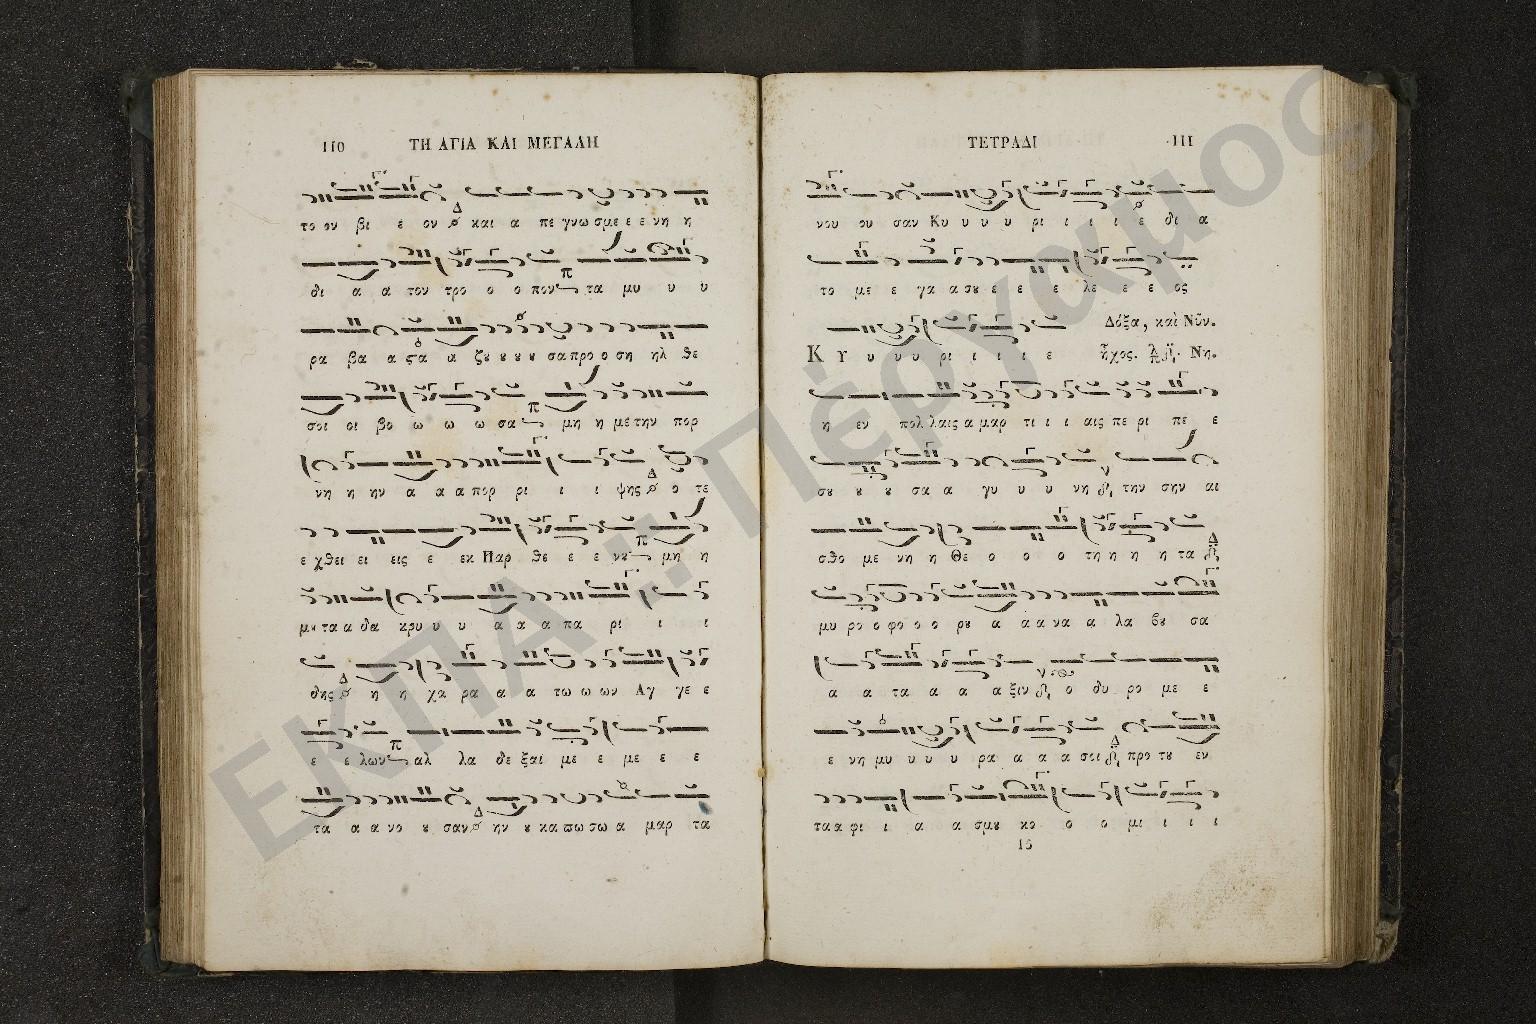 110 ΤΗ ΑΓΙΑ ΚΑΙ ΜΕΓΑΛΗ
το ον βι ε ον και α πε γνω σμε ε ε νη η
δι α α τον τρο ο ο πον τα μυ υ υ
ρα βα α ϛα α ζου ου ου ου σα προ ο ση ηλ θε
σοι οι βο ω ω ω σα μη η με την πορ
νη η ην α α α πορ ρι ι ι ψης ο τε
ε χθει ει εις ε εκ Παρ θε ε ε νου μη η
μου τα α δα κρυ υ υ α α α πα ρι ι ι
δης η η χα ρα α α τω ω ων Αγ γε ε
ε ε λων αλ λα δε ξαι με ε με ε ε
τα α α νο ου σαν ην ου κα πω σω α μαρ τα
ΤΕΤΡΑΔΙ 111
νου ου σαν Κυ υ υ υ ρι ι ι ι ε δι α
το με ε γα α σου ε ε ε λε ε ε ος
Δόξα, καὶ Νῦν.
Κ υ υ υ υ ρι ι ι ι ε ἦχος. Νη.
η εν πολ λαις α μαρ τι ι ι αις πε ρι πε ε
σου ου ου σα α γυ υ υ νη την σην αι
σθο με νη η Θε ο ο ο τη η η η τα
μυ ρο ο φο ο ο ρου α α α να α λα βου σα
α α τα α α α ξιν ο δυ ρο με ε
ε νη μυ υ υ υ ρα α α α σοι προ του εν
τα α φι ι α α σμου κο ο ο μι ι ι ι
ΕΚΠΑ :: Πέργαμος